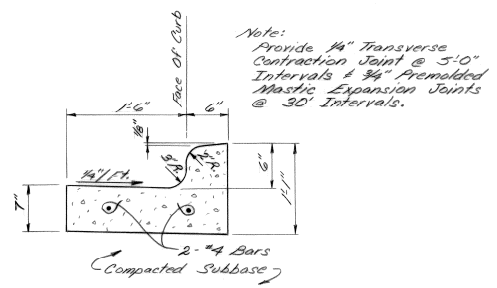 Face Of Curb
Note:
Provide 1/4" Transverse
Contraction Joint @ 5'-0"
Intervals & 3/4" Premolded
Mastic Expansion Joints
@ 30' Intervals.
1'-6"
6"
1/8"
1/4"/Ft.
7"
6"
1'-1"
2-#4 Bars
Compacted Subbase